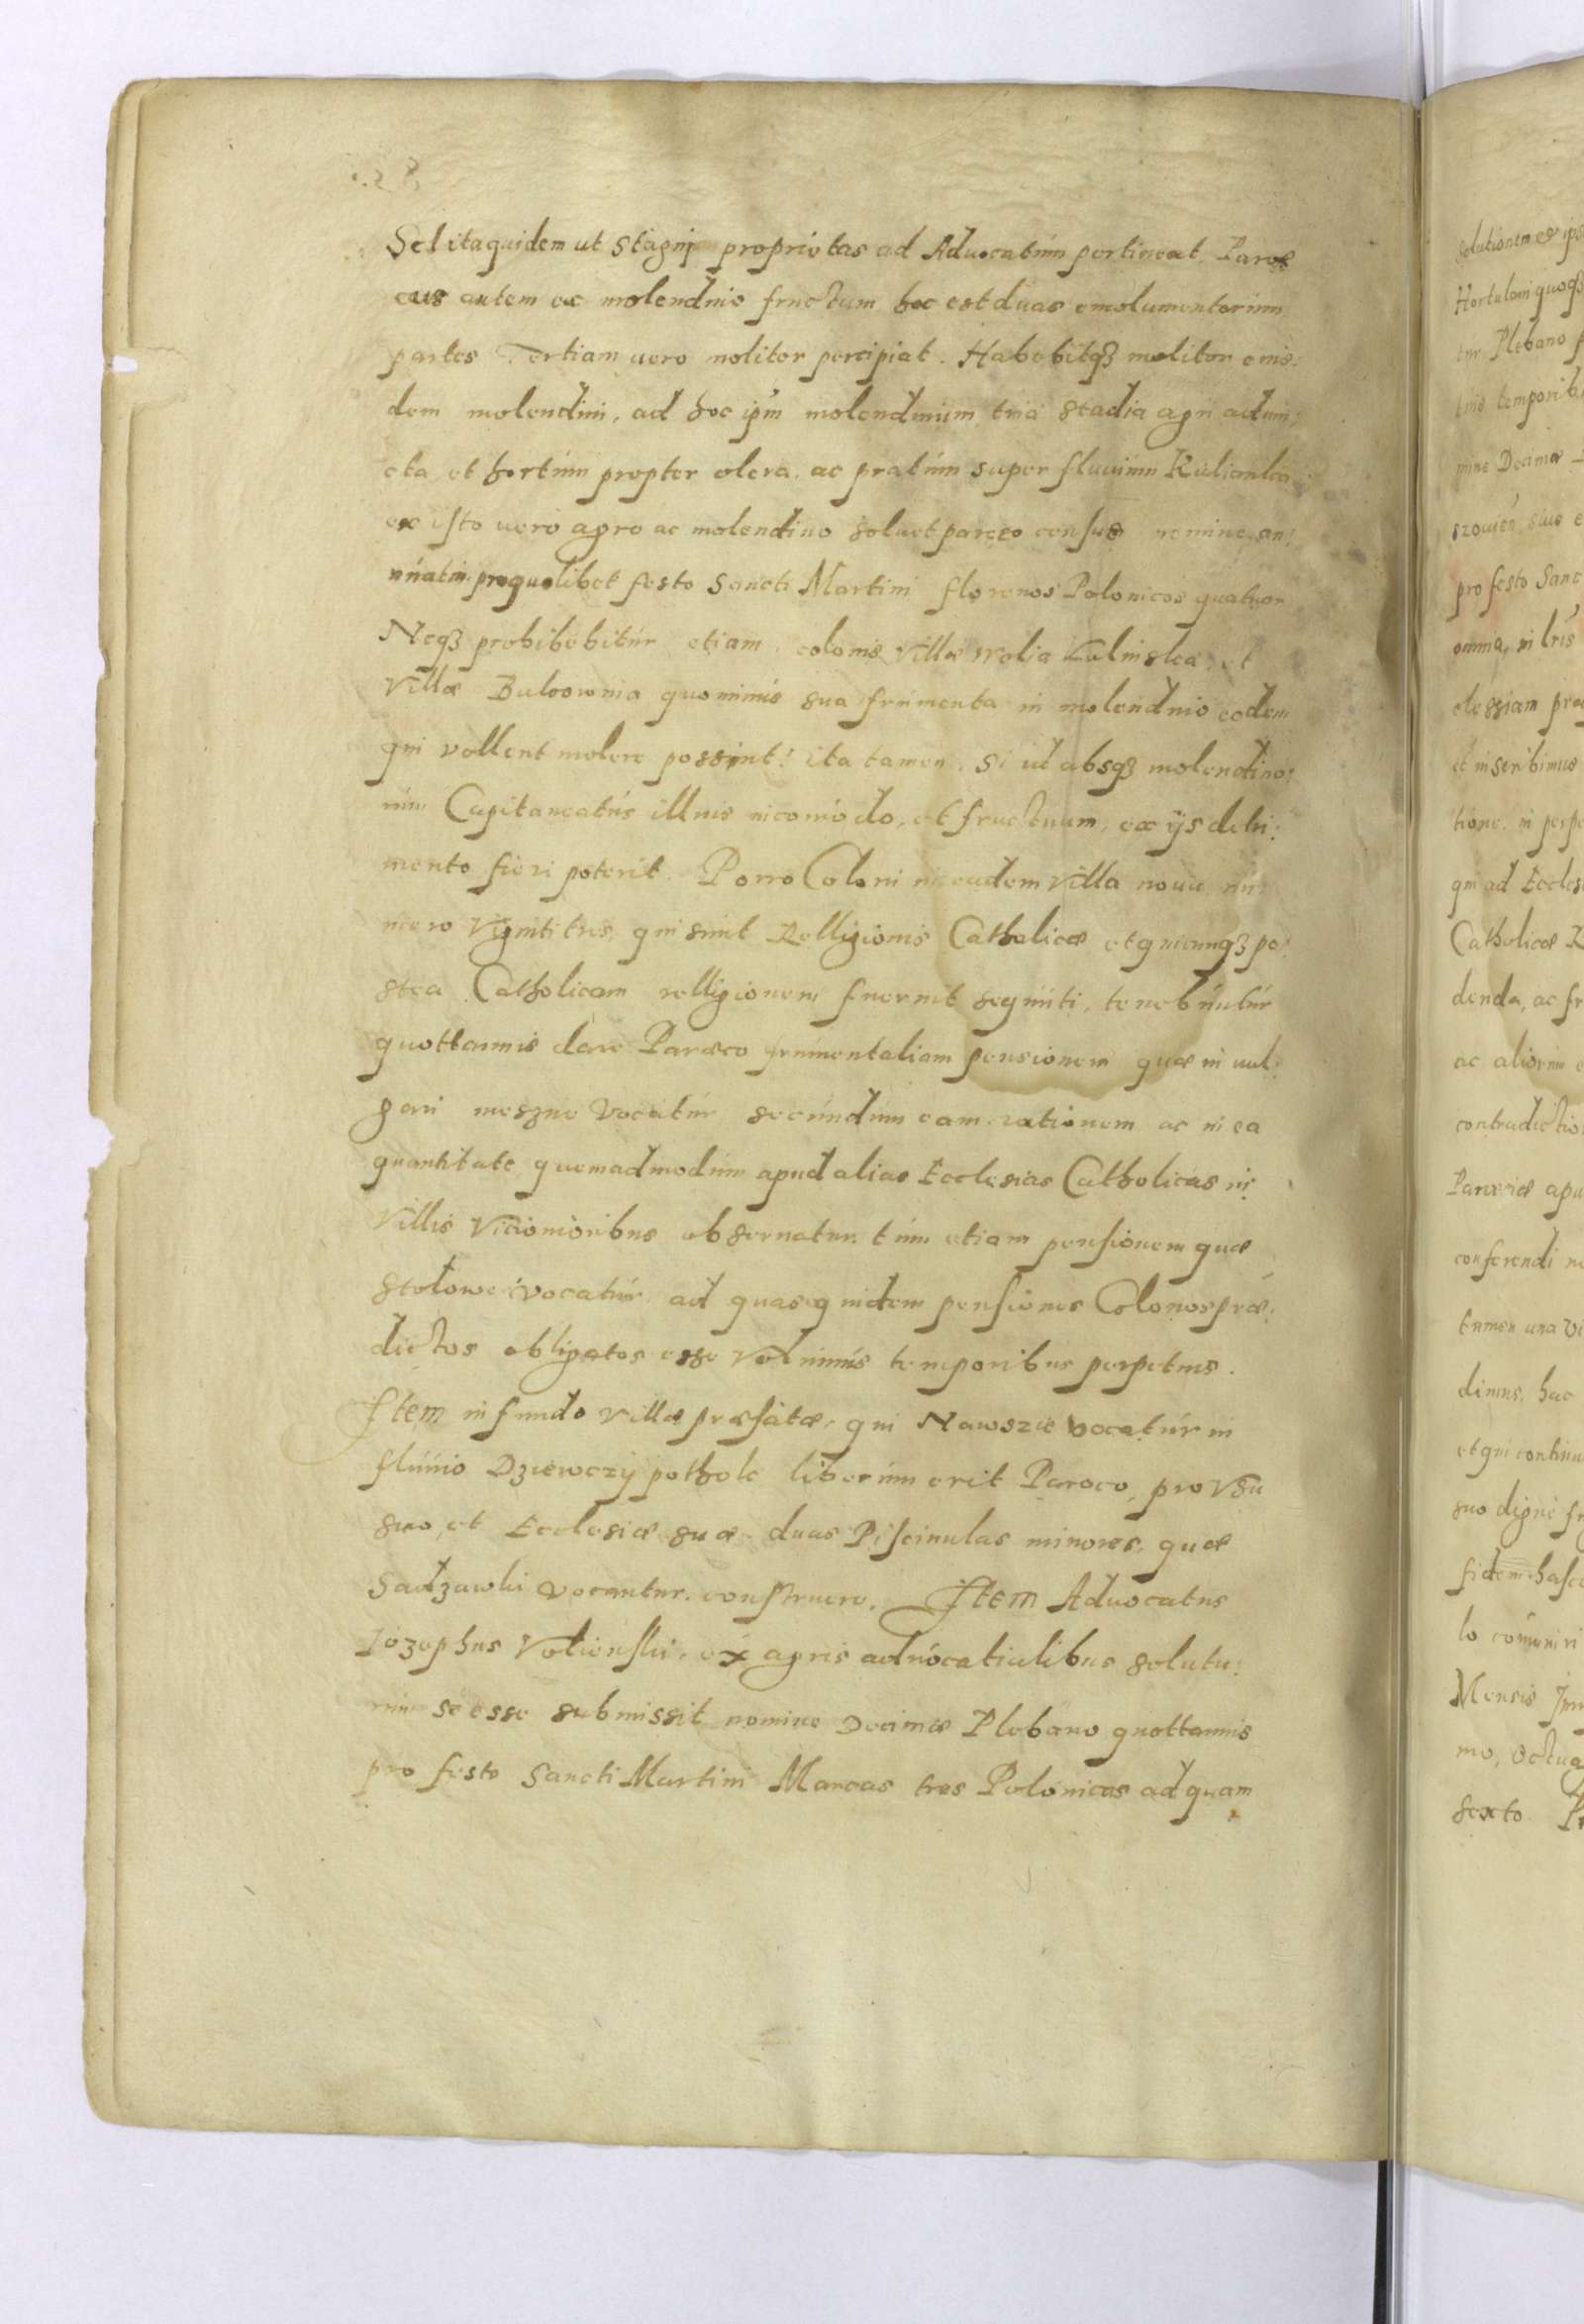 Sed ita quidem ut stagnj proprietas ad Aduocatum pertineat. Paroe
cus autem ex molendino fructum hoc est duas emolumentorum
partes Tertiam uero molitor percipiat. Habebitqȝ molitor eius:
dem molendini, ad hoc ipm̄ molendinum tria stadia agri adiun:
cta et hortum propter olera, ac pratum super fluuium
ex isto uero agro ac molendino soluet paroeco census nomine an:
nuatim pro quolibet festo Sancti Martini florenos Polonicos quatuor
Neqȝ prohibebitur etiam colonis Villæ Wolia Kulinska, et
Villæ Bukownia quominus sua frumenta in molendino eodem
qui vellent molere possint: ita tamen. Si id absqȝ molendino:
rum Capitaneatus illius incomodo, et fructuum, ex ijs detri:
mento fieri poterit. Porro Coloni in eadem Villa noua nu:
mero Viginti tres, qui sunt Relligionis Catholicæ et quicunqȝ po:
stea Catholicam relligionem fuerint sequuti, tenebuntur
quottannis dare Paroeco frumentaliam pensionem quæ in uul:
gari meszne Vocatur secundum eam rationem ac in ea
quantitate quemadmodum apud alias Ecclesias Catholicas in
Villis Vicinioribus obseruatur. tum etiam pensionem quæ
stołowe vocatur ad quas quidem pensiones Colonos præ:
dictos obligatos esse Volumus temporibus perpetuis.
Item in fundo Villæ præfatæ, qui Nawszie vocatur in
fluuio Dziewczij pothok liberum erit Paroco, pro Vsu
suo, et Ecclesiæ suæ duas Piscinulas minores, quæ
Sadzawki vocantur. construere. Item Aduocatus
Iozephus Volienski, ex agris aduocatialibus solutu:
rum se esse submissit nomine Decimæ Plebano quottannis
pro festo Sancti Martini Marcas tres Polonicas ad quam
solutionem ex ips
Hortulani quoqȝ
tur Plebano p
tuis temporib
mine Decimæ
szouien siue e
pro festo Sanc
omnia, in lris
clessiam præ
et inscribimus
tione, in perpe
qui ad Eccles
Catholicæ R
denda, ac fr
ac aliorum
contradictio
Paroeciæ apu
conferendi
tamen una Vi
dimus, hac
et qui continu
suo digne fu
fidem hasce
lo comuniri
Mensis Jun
mo, Octua
sexto. Pr